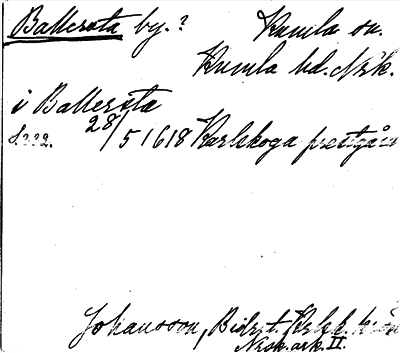 Ballersta by.? Kumla sn.
Kumla hd. Nrk.
i Ballersta
s. 222. 28/5 1618 Karlskoga prestgård
Johansson, Bidr. t. Karlsk.
Nrsk. ark. II.